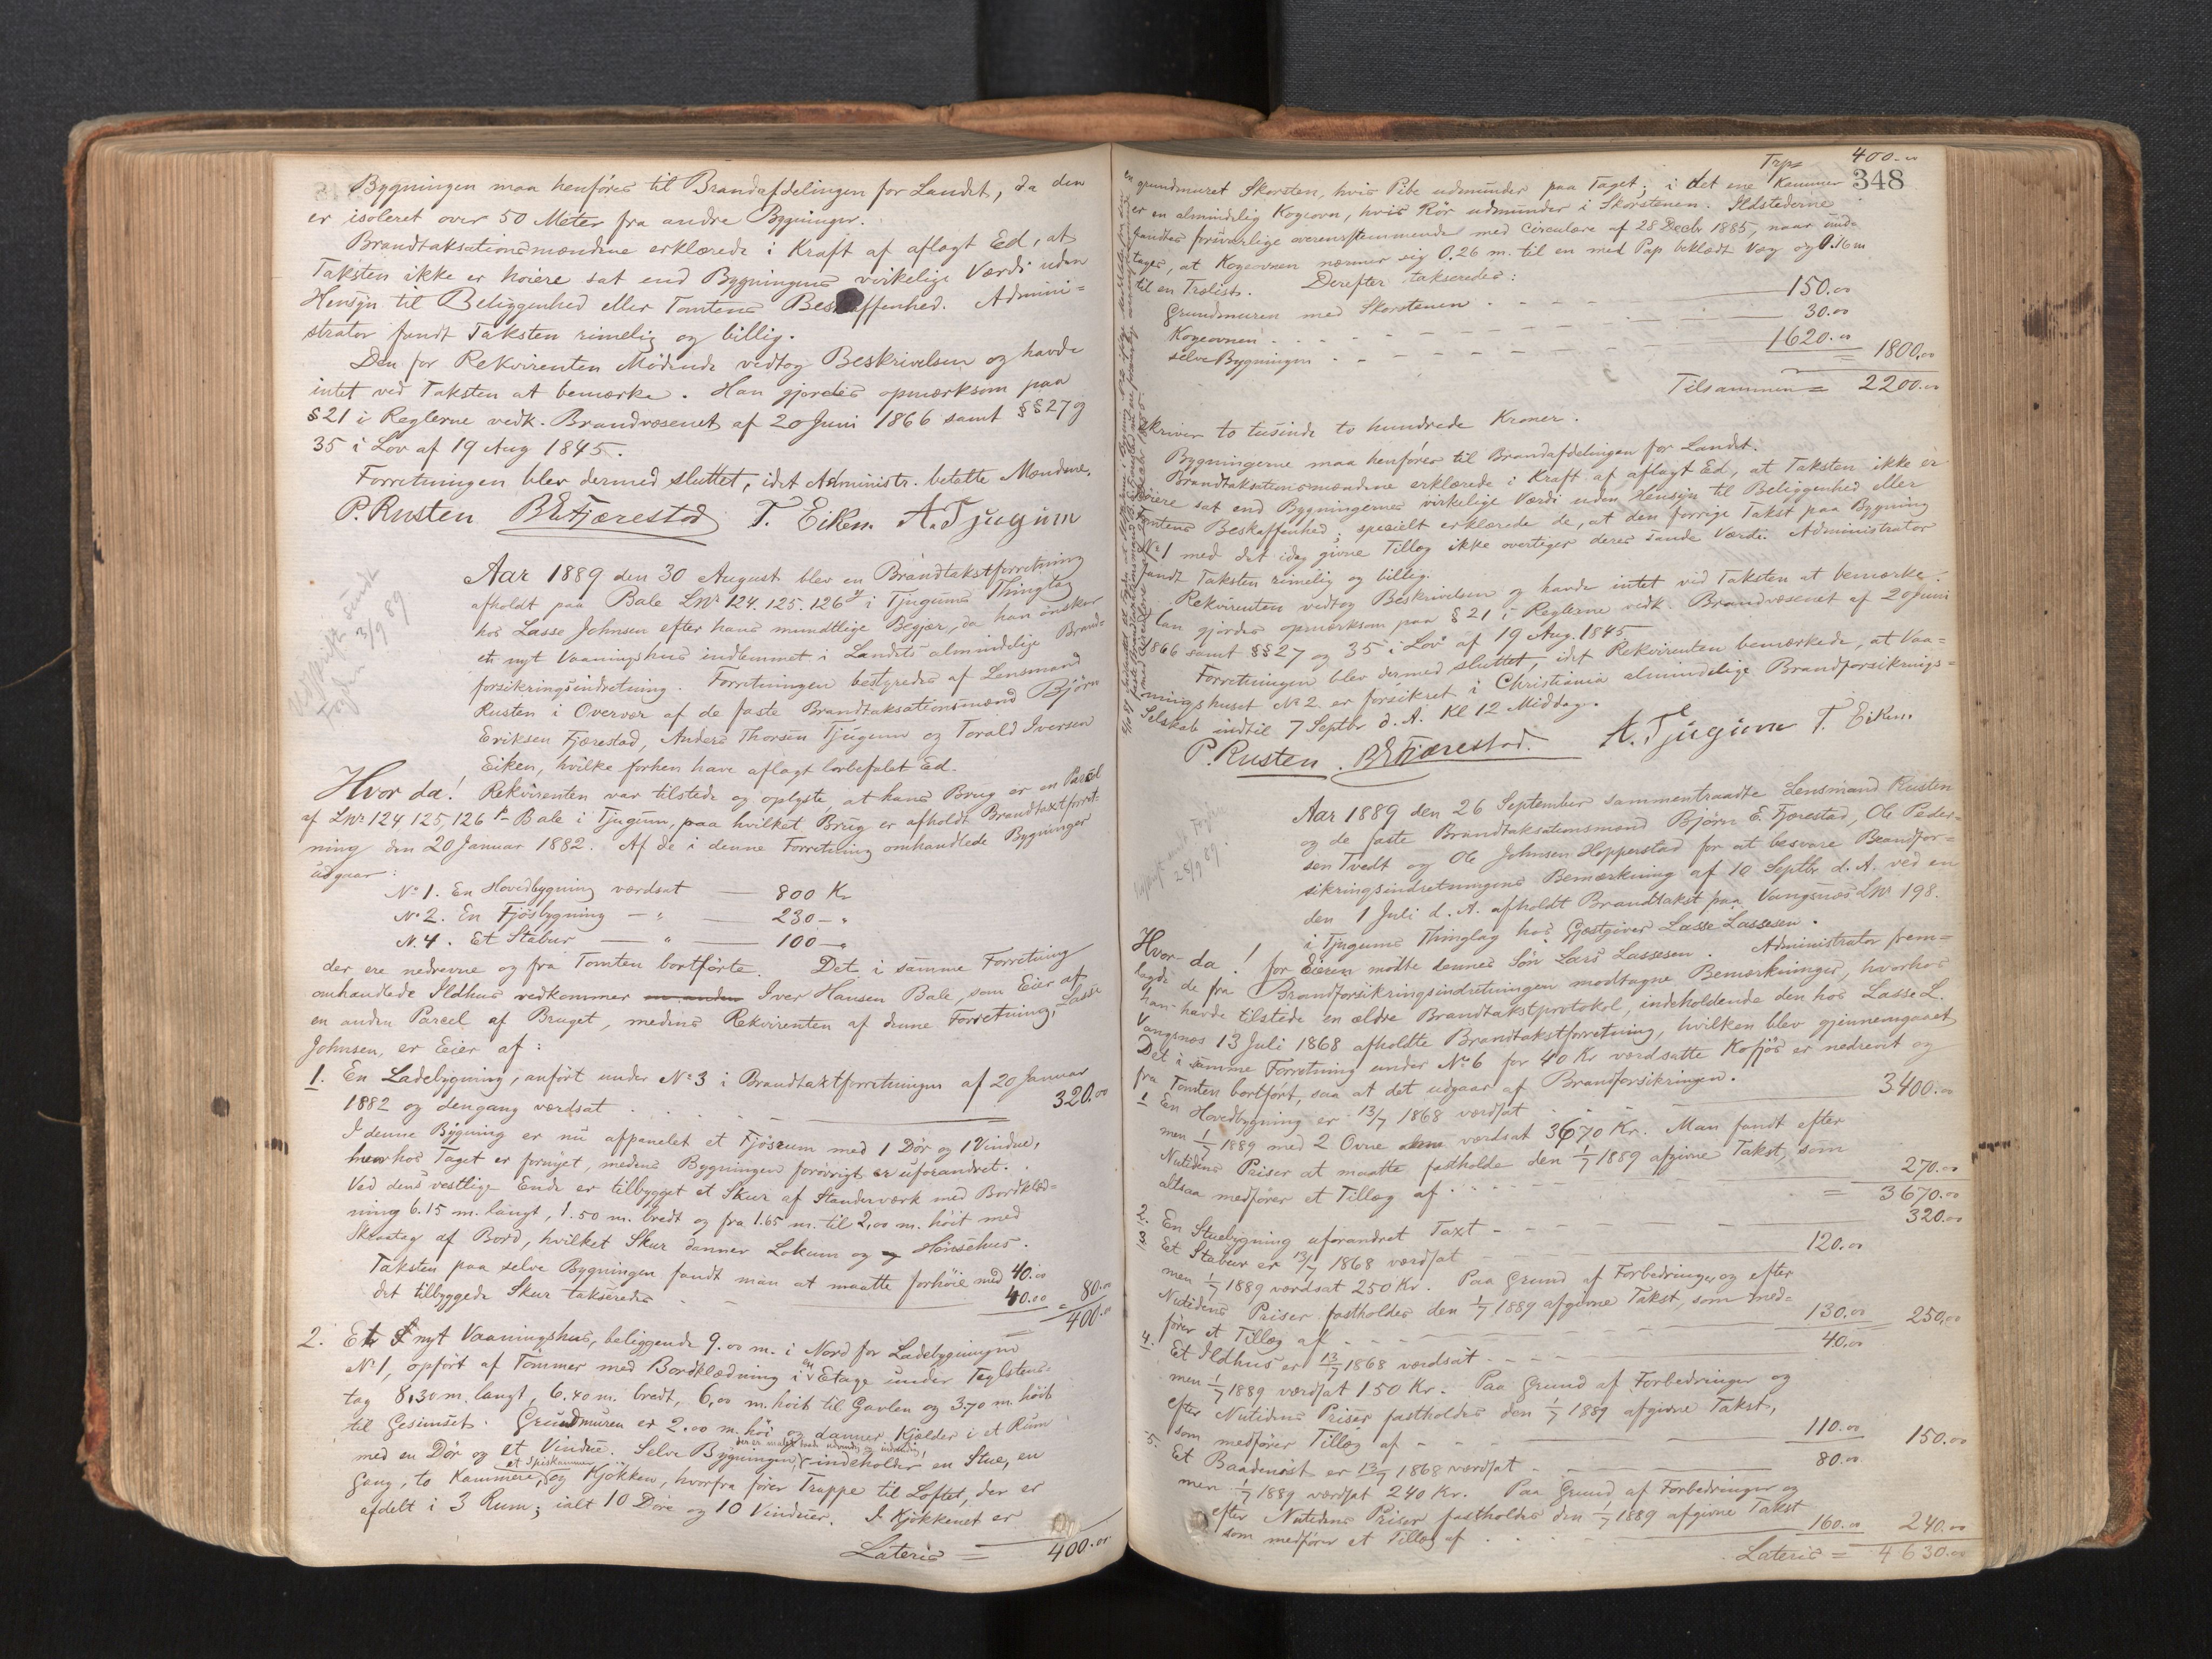 Bygningen maa henføres til Brandafdelingen for Landet, da den
er isoleret over 50 Meter fra andre Bygninger.
Brandtaksationsmændene erklærede i Kraft af aflagt Ed, at
Taksten ikke er høiere sat end Bygningens virkelige Værdi uden
Hensyn til Beliggenhed eller Tomtens Beskaffenhed. Admini=
strator fandt Taksten rimelig og billig.
Den for Rekvirenten Mødende vedtog Beskrivelsen og havde
intet ved Taksten at bemærke. Han gjordes opmærksom paa
§21 i Reglerne vedk. Brandvæsenet af 20 Juni 1866 samt §§27 og
35 i Lov af 19 Aug 1845.
Forretningen blev dermed sluttet, idet Administr. betalte Mændene.
P. Rusten B E Fjærestad T. Eiken A. Tjugum
Afskrift sendt
Fogden 3/9 89
Aar 1889 den 30 August blev en Brandtakstforretning
afholdt paa Bale LNr 124. 125. 126 i Tjugums Thinglag
hos Lasse Johnsen efter hans mundtlige Begjær, da han ønsker
et nyt Vaaningshus indlemmet i Landets almindelige Brand=
forsikringsindretning. Forretningen bestyredes af Lensmand
Rusten i Overvær af de faste Brandtaksationsmænd Bjørn
Eriksen Fjærestad, Anders Thorsen Tjugum og Torald Iversen
Eiken, hvilke forhen have aflagt lovbefalet Ed.
Hvor da! Rekvirenten var tilstede og oplyste, at hans Brug er en Parcel
af LNr 124, 125, 126 Bale i Tjugum, paa hvilket Brug er afholdt Brandtaxtforret-
ning den 20 Januar 1882. Af de i denne Forretning omhandlede Bygninger
udgaar:
No 1. En Hovedbygning værdsat — 800 Kr
No 2. En Fjøsbygning — " — 230 — "
N. 4. Et Stabur — " — 100 — "
der ere nedrevne og fra Tomten bortførte. Det i samme Forretning
omhandlede Ildhus vedkommer en anden Iver Hansen Bale, som Eier af
en anden Parcel af Bruget, medens Rekvirenten af denne Forretning, Lasse
Johnsen, er Eier af:
1. En Ladebygning, anført under No 3 i Brandtaxtforretningen af 20 Januar
1882 og dengang værdsat . . . 320.00
I denne Bygning er nu afpanelet et Fjøsrum med 1 Dør og 1 Vindue,
hvorhos Taget er fornyet, medens Bygningen forøvrigt er uforandret.
Ved dens vestlige Ende er tilbygget et Skur af Standerværk med Bordklæd=
ning 6.15 m. langt, 1.50 m. bredt og fra 1.65 m. til 2,00 m. høit med
Skraatag af Bord, hvilket Skur danner Lokum og Hønsehus.
Taksten paa selve Bygningen fandt man at maatte forhøie med 40.00
det tilbyggede Skur takseredes . . 40.00 = 80.00
= 400.00
2. Et nyt Vaaningshus, beliggende 9.00 m. i Nord for Ladebygningen
No 1, opført af Tømmer med Bordklædning i en Etage under Teglstens-
tag 8,30 m. langt, 6.40 m. bredt, 6,00 m. høit til Gavlen og 3.70 m. høit
til Gesimset. Grundmuren er 2.00 m. høi og danner Kjælder i et Rum
med en Dør og et Vindue. Selve Bygningen, der er malet baade udvendig og indvendig, indeholder en Stue, en
Gang, to Kammere, et Spiskammer og Kjøkken, hvorfra fører Trappe til Loftet, der er
afdelt i 3 Rum; ialt 10 Døre og 10 Vinduer. I Kjøkkenet er
Lateris = 400.00
Trp 400.00
348
en grundmuret Skorsten, hvis Pibe udmunder paa Taget; i det ene Kammer
er en almindelig Kogeovn, hvis Rør udmunder i Skorstenen. Ildstederne
fandtes forsvarlige overensstemmende med Circulære af 28 Decbr 1885, naar und-
tages, at Kogeovnen nærmer sig 0.26 m. til en med Pap beklædt Væg og 0.16 m
til en Trælist. Derefter takseredes:
Grundmuren med Skorstenen . . . 150.00
Kogeovnen . . . 30.00
selve Bygningen . . . 1620.00 = 1800.00
Tilsammen = 2200.00
skriver to tusinde to hundrede Kroner.
Bygningerne maa henføres til Brandafdelingen for Landet.
Brandtaksationsmændene erklærede i Kraft af aflagt Ed, at Taksten ikke er
høiere sat end Bygningernes virkelige Værdi uden Hensyn til Beliggenhed eller
Tomtens Beskaffenhed; specielt erklærede de, at den forrige Takst paa Bygning
No 1 med det idag givne Tillæg ikke overstiger deres sande Værdi. Administrator
fandt Taksten rimelig og billig.
Rekvirenten vedtog Beskrivelsen og havde intet ved Taksten at bemærke.
Han gjordes opmærksom paa §21 i Reglerne vedk. Brandvæsenet af 20 Juni
1866 samt §§27 og 35 i Lov af 19 Aug. 1845.
Forretningen blev dermed sluttet, idet Rekvirenten bemærkede, at Vaa=
ningshuset No 2 er forsikret i Christiania almindelige Brandforsikrings=
Selskab indtil 7 Septbr d. A. Kl 12 Middag.
P. Rusten. B E Fjærestad. A. Tjugum T. Eiken.
Afskrift sendt Fogden
28/9 89.
Aar 1889 den 26 September sammentraadte Lensmand Rusten
og de faste Brandtaksationsmænd Bjørn E. Fjærestad, Ole Peder-
sen Tvedt og Ole Johnsen Hopperstad for at besvare Brandfor-
sikringsindretningens Bemærkning af 10 Septbr d. A. ved en
den 1 Juli d. A. afholdt Brandtakst paa Vangsnæs LNr 198.
i Tjugums Thinglag hos Gjæstgiver Lasse Lassesen.
Hvor da! for Eieren mødte dennes Søn Lars Lassesen. Administrator frem=
lagde de fra Brandforsikringsindretningen modtagne Bemærkninger, hvorhos
han havde tilstede en ældre Brandtakstprotokol, indeholdende den hos Lasse L.
Vangsnæs 13 Juli 1868 afholdte Brandtakstforretning, hvilken blev gjennemgaaet
Det i samme Forretning under No 6 for 40 Kr værdsatte Kofjøs er nedrevet og
fra Tomten bortført, saa at det udgaar af Brandforsikringen.
1 En Hovedbygning er 13/7 1868 værdsat . . . 3400.00
men 1/7 1889 med 2 Ovne værdsat 3670 Kr. Man fandt efter
Nutidens Priser at maatte fastholde den 1/7 1889 afgivne Takst, som
altsaa medfører et Tillæg af . . . 270.00
= 3670.00
2. En Stuebygning uforandret Taxt . . . 320.00
3 Et Stabur er 13/7 1868 værdsat . . . 120.00
men 1/7 1889 værdsat 250 Kr. Paa Grund af Forbedringer og efter
Nutidens Priser fastholdes den 1/7 1889 afgivne Takst, som med-
fører et Tillæg af . . . 130.00 250.00
4. Et Ildhus er 13/7 1868 værdsat . . . 40.00
men 1/7 1889 værdsat 150 Kr. Paa Grund af Forbedringer og
efter Nutidens Priser fastholdes den 1/7 1889 afgivne Takst,
som medfører Tillæg af . . . 110.00 150.00
5. Et Baadenøst er 13/7 1868 værdsat . . . 80.00
men 1/7 1889 værdsat 240 Kr. Paa Grund af Forbedringer og
efter Nutidens Priser fastholdes den 1/7 1889 afgivne Takst
som medfører et Tillæg af . . . 160.00 240.00
Lateris = 4630.00